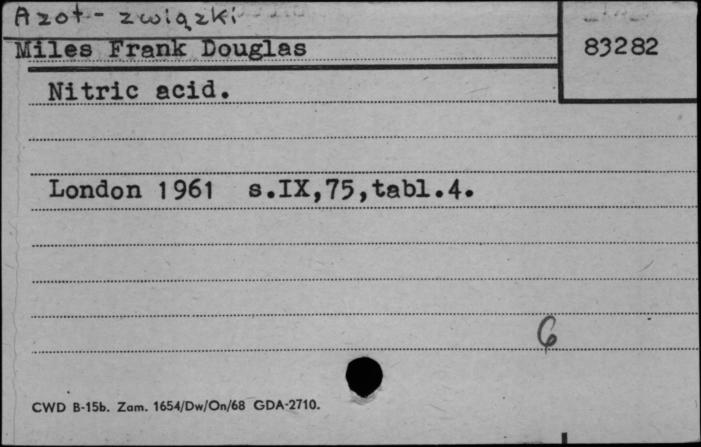 Azot - związki
Miles Frank Douglas
83282
Nitric acid.
London 1961 s.IX,75,tabl.4.
6
CWD B-15b. Zam. 1654/Dw/On/68 GDA-2710.